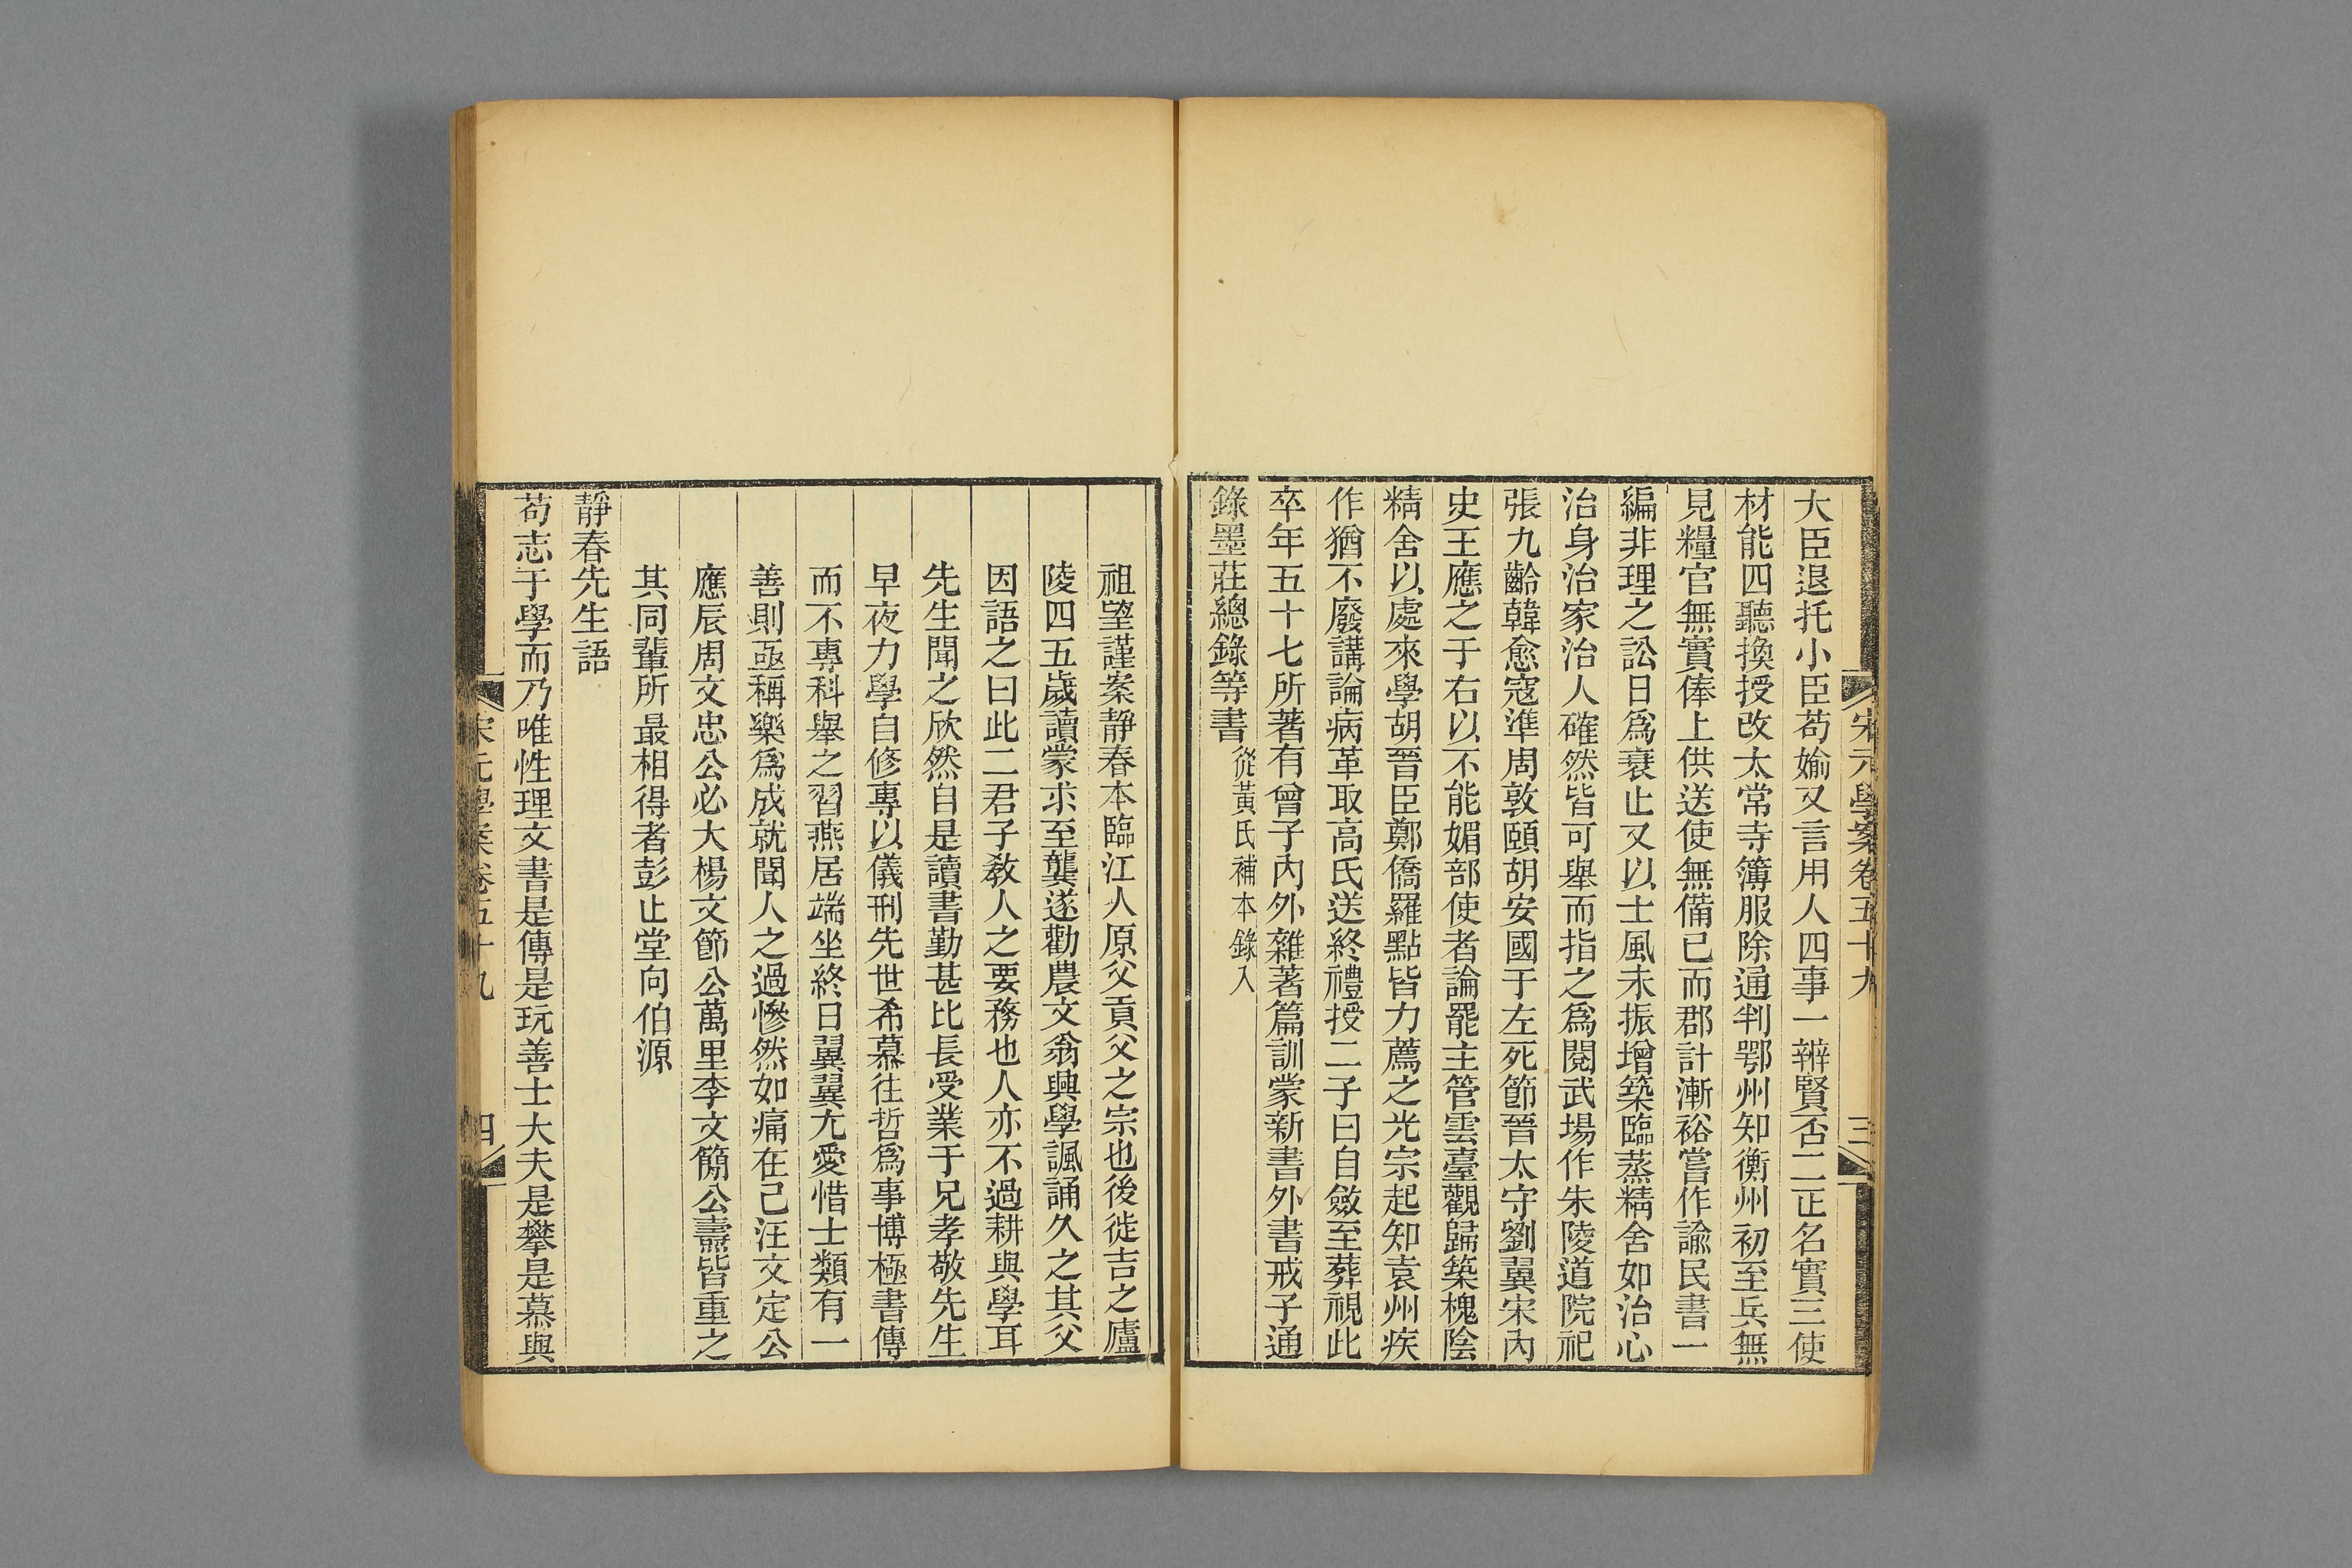 宋元學案卷五十九 三
大臣退托小臣苟媮又言用人四事一辨賢否二正名實三使
材能四聽換授改太常寺簿服除通判鄂州知衡州初至兵無
見糧官無實俸上供送使無備已而郡計漸裕嘗作諭民書一
編非理之訟日爲衰止又以士風未振增築臨蒸精舍如治心
治身治家治人確然皆可舉而指之爲閱武場作朱陵道院祀
張九齡韓愈寇準周敦頤胡安國于左死節晉太守劉翼宋內
史王應之于右以不能媚部使者論罷主管雲臺觀歸築槐陰
精舍以處來學胡晉臣鄭僑羅點皆力薦之光宗起知袁州疾
作猶不廢講論病革取高氏送終禮授二子曰自斂至葬視此
卒年五十七所著有曾子內外雜著篇訓蒙新書外書戒子通
錄墨莊總錄等書從黃氏補本錄入
祖望謹案靜春本臨江人原父貢父之宗也後徙吉之廬
陵四五歲讀蒙求至龔遂勸農文翁興學諷誦久之其父
因語之曰此二君子敎人之要務也人亦不過耕與學耳
先生聞之欣然自是讀書勤甚比長受業于兄孝敬先生
早夜力學自修專以儀刑先世希慕往哲爲事博極書傳
而不專科舉之習燕居端坐終日翼翼尤愛惜士類有一
善則亟稱樂爲成就聞人之過慘然如痛在己汪文定公
應辰周文忠公必大楊文節公萬里李文簡公壽皆重之
其同輩所最相得者彭止堂向伯源
靜春先生語
苟志于學而乃唯性理文書是傳是玩善士大夫是攀是慕與
宋元學案卷五十九 四